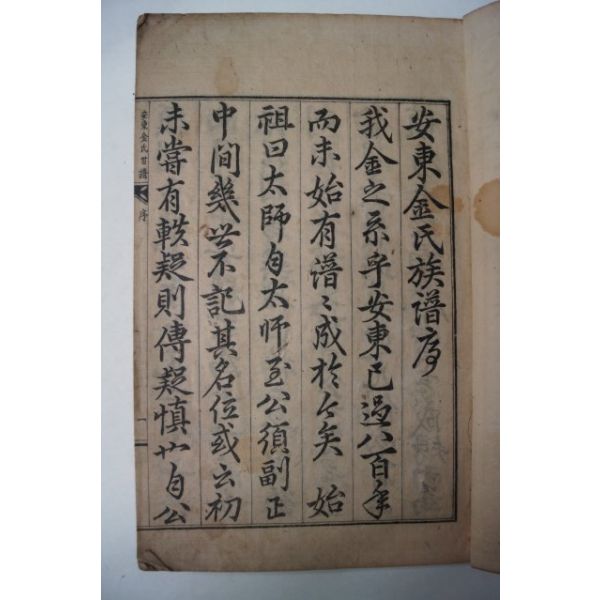 安東金氏族譜序
我金之系乎安東已過八百年
而未始有譜〻成於今矣 始
祖曰太師自太師至公須副正
中间幾世不記其名位或云初
未嘗有軼疑則傳疑慎也自公
安東金氏世譜 序 一